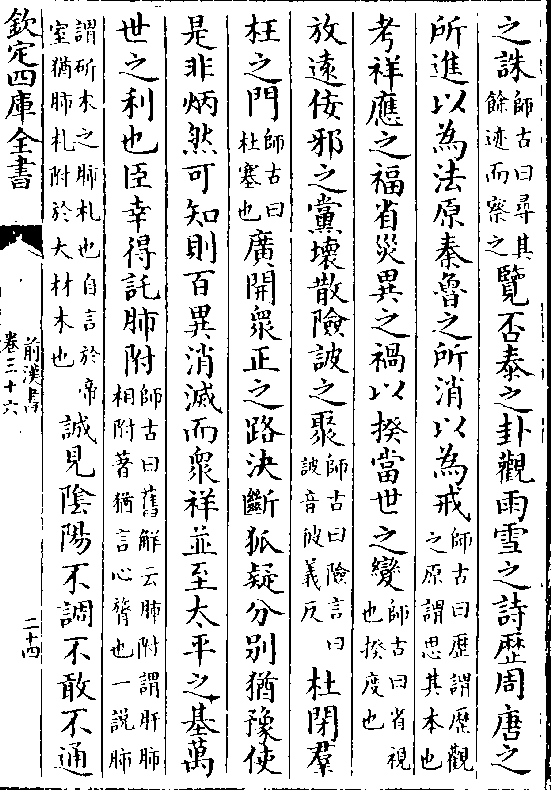 之誅師古曰尋其餘迹而察之覽否泰之卦觀雨雪之詩歷周唐之
所進以為法原秦魯之所消以為戒師古曰歷謂歷觀之原謂思其本也
考祥應之福省災異之禍以揆當世之變師古曰省視也揆度也
放遠佞邪之黨壞散險詖之聚師古曰險言曰詖音彼義反杜閉羣
枉之門師古曰杜塞也廣開衆正之路決斷狐疑分別猶豫使
是非炳然可知則百異消滅而衆祥並至太平之基萬
世之利也臣幸得託肺附師古曰舊解云肺附謂肝肺相附著猶言心膂也一說肺
謂斫木之肺札也自言於帝室猶肺札附於大材木也誠見陰陽不調不敢不通
欽定四庫全書
前漢書
卷三十六
二十四